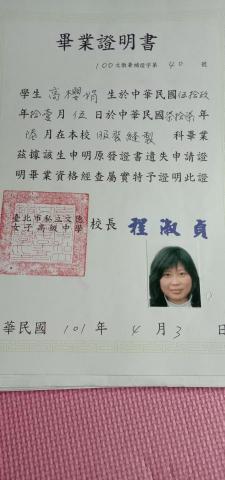 畢業證明書
100文教兼補證字第40號
學生高櫻娟生於中華民國伍拾玖
年拾壹月伍日於中華民國柒拾柒年
陸月在本校服裝縫製科畢業
茲據該生申明原發證書遺失申請證
明畢業資格經查屬實特予證明此證
臺北市私立文德
女子高級中學
校長程淑貞
華民國101年4月3日